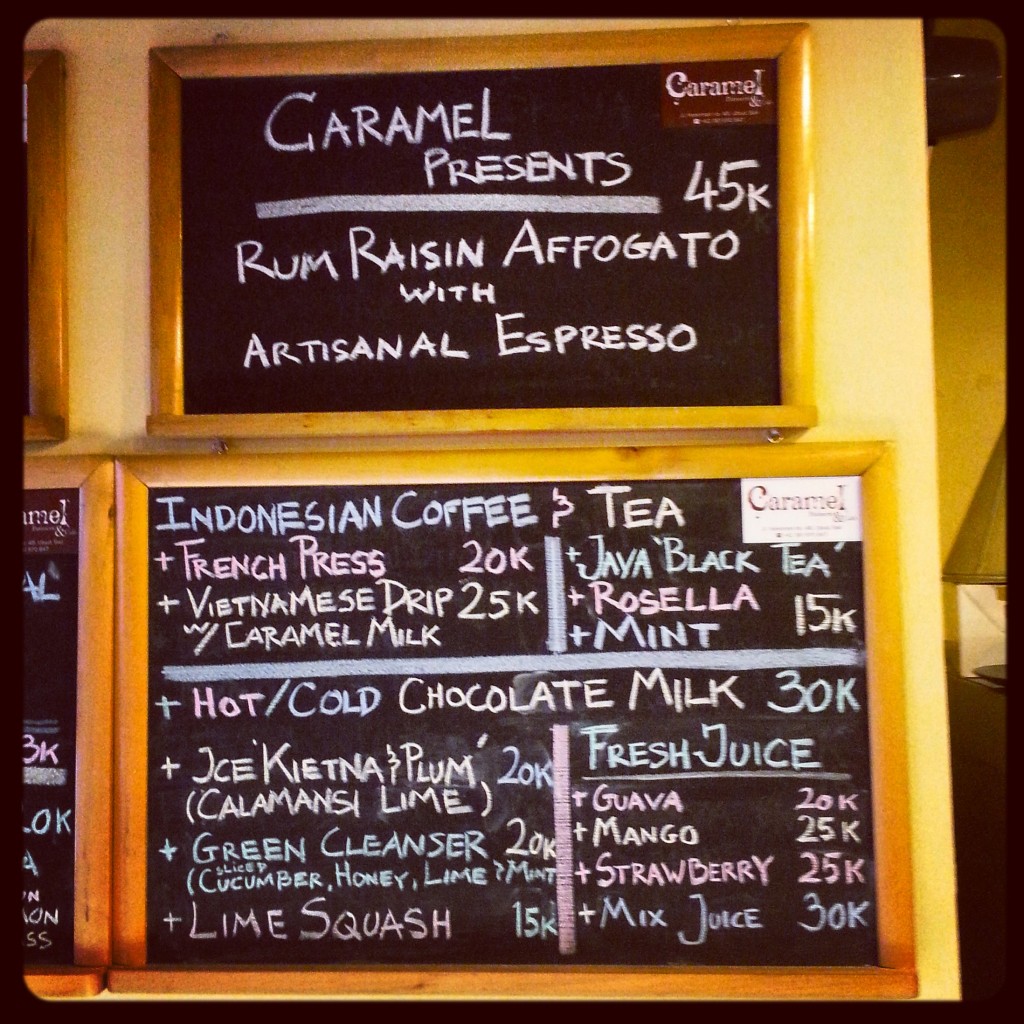 CARAMEL
PRESENTS
45K
RUM RAISIN AFFOGATO
WITH
ARTISANAL ESPRESSO
Caramel
&
INDONESIAN COFFEE & TEA
Caramel
&
+ FRENCH PRESS 20K
+ VIETNAMESE DRIP 25K
W/ CARAMEL MILK
+ JAVA 'BLACK TEA'
+ ROSELLA
+ MINT
15K
+ HOT/COLD CHOCOLATE MILK 30K
+ ICE 'KIETNA & PLUM' 20K
(CALAMANSI LIME)
+ GREEN CLEANSER 20K
(SLICED CUCUMBER, HONEY, LIME & MINT
+ LIME SQUASH 15K
FRESH-JUICE
+ GUAVA 20K
+ MANGO 25K
+ STRAWBERRY 25K
+ MIX JUICE 30K
amel
&
AL'
3K
0K
A
ON
SS